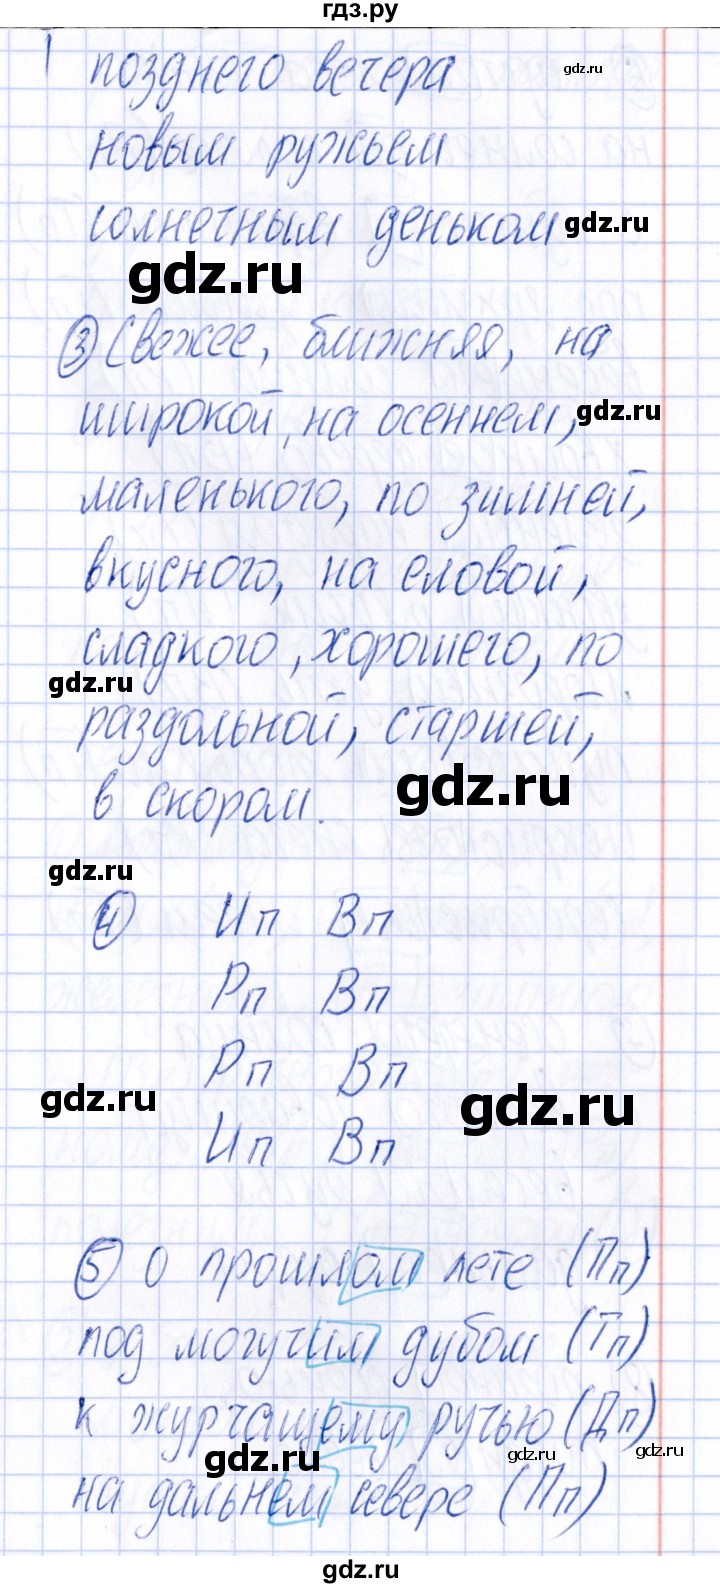 гдз.ру
1 позднего вечера
gdz.ru
новым ружьем
солнечным деньком
gdz.ru
gdz.ru
③ Свежее, ближняя, на
широкой, на осеннем,
gdz.ru
маленького, по зимней,
вкусного, на еловой,
сладкого, хорошего, по
gdz.ru
раздольной, старшей,
в скором.
gdz.ru
gdz.ru
④ Ип Вп
Рп Вп
Рп Вп
gdz.ru
gdz.ru
Ип Вп
⑤ О прошлом лете (Пп)
под могучим дубом (Тп)
к журчащему ручью (Дп)
gdz.ru
gdz.ru
gdz.ru
на дальнем севере (Пп)
gdz.ru